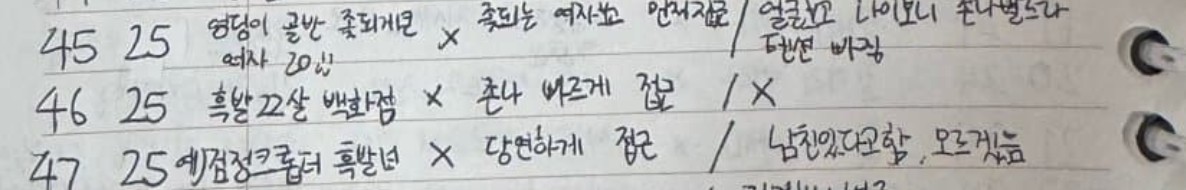 45 25 엉덩이 골반 좆되게큰 x 좆되는 여자보고 먼저접근 / 얼굴보고 나이보니 존나별느라
여자 20!! 텐션 빠짐
46 25 흑발 22살 백화점 x 존나 빠르게 접근 / X
47 25 예)검정크롭티 흑발년 x 당연하게 접근 / 남친있다고함, 모르겠음